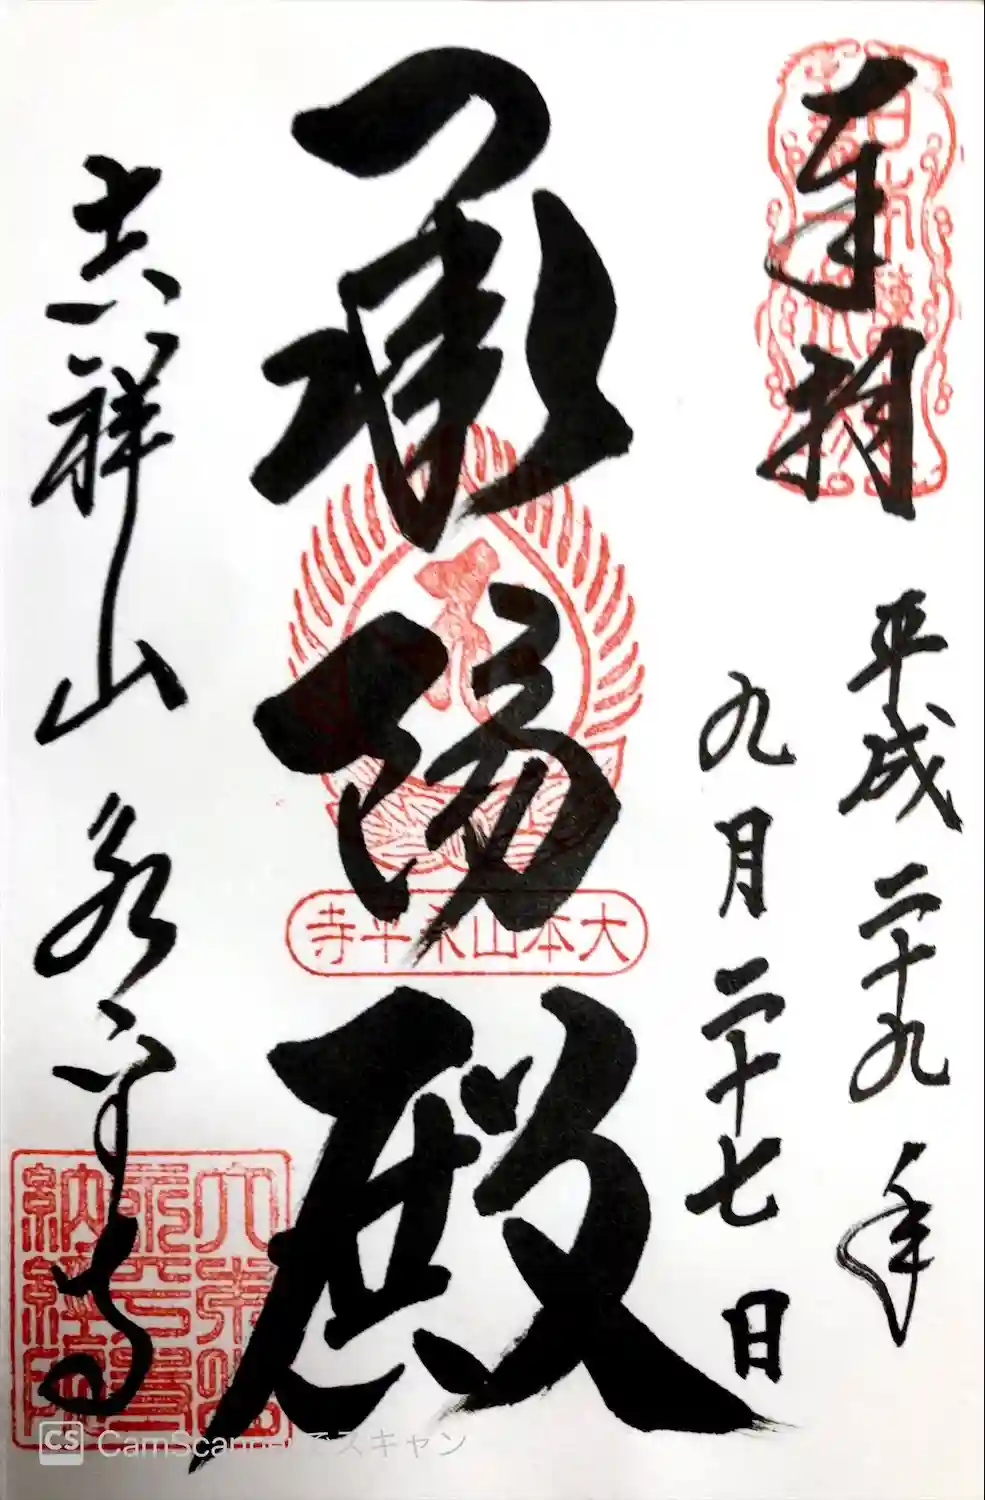 奉拝
平成二十九年
九月二十七日
承陽殿
大本山永平寺
吉祥山永平寺
CS CamScannerでスキャン